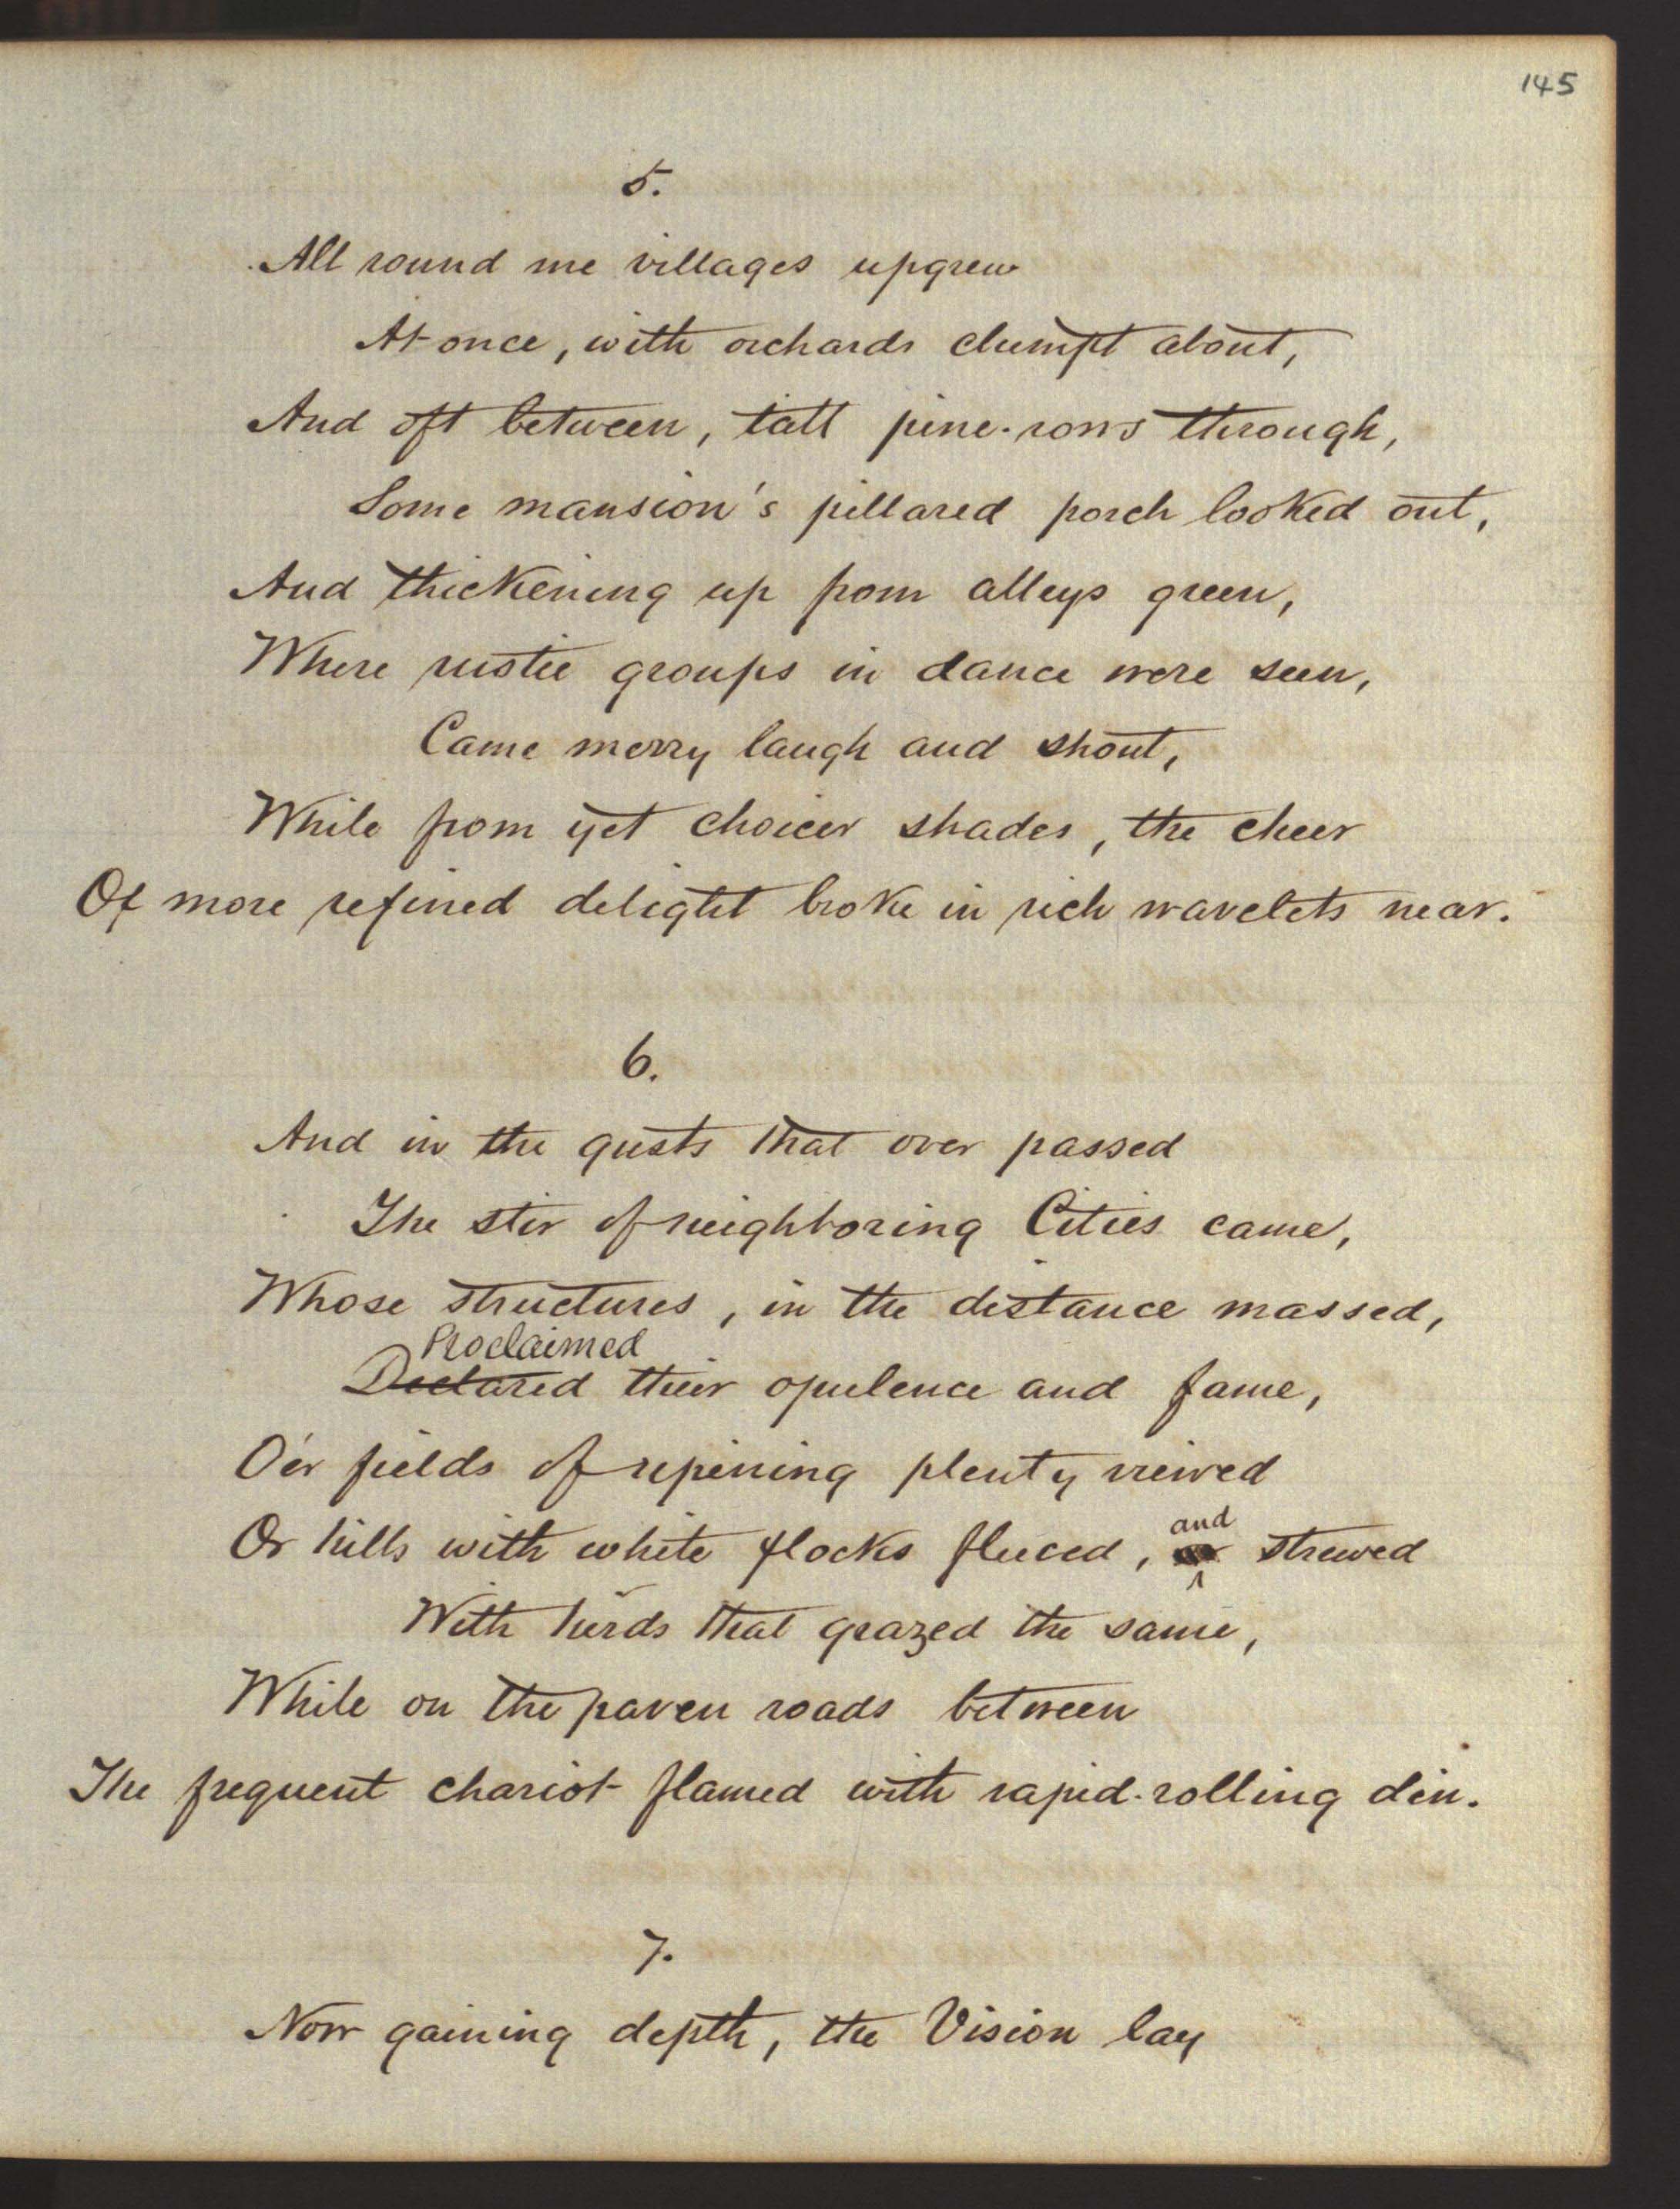 145
5.
All round me villages upgrew
At once, with orchards clumpt about,
And oft between, tall pine-rows through,
Some mansion's pillared porch looked out,
And thickening up from alleys green,
Where rustic groups in dance were seen,
Came merry laugh and shout,
While from yet choicer shades, the cheer
Of more refined delight broke in rich wavelets near.
6.
And in the gusts that over passed
The stir of neighboring Cities came,
Whose structures, in the distance massed,
Proclaimed
Declared their opulence and fame,
O'er fields of ripening plenty viewed
and
Or hills with white flocks fleeced, strewed
With herds that grazed the same,
While on the paven roads between
The frequent chariot flamed with rapid-rolling din.
7.
Now gaining depth, the Vision lay